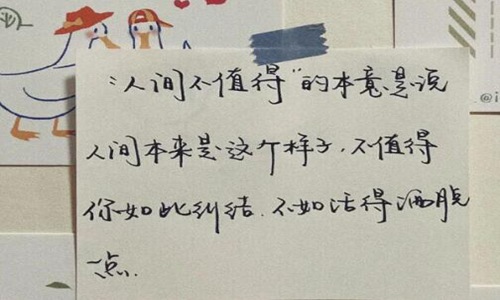 “人间不值得”的本意是说
人间本来是这个样子，不值得
你如此纠结.不如活得洒脱
一点.
@i